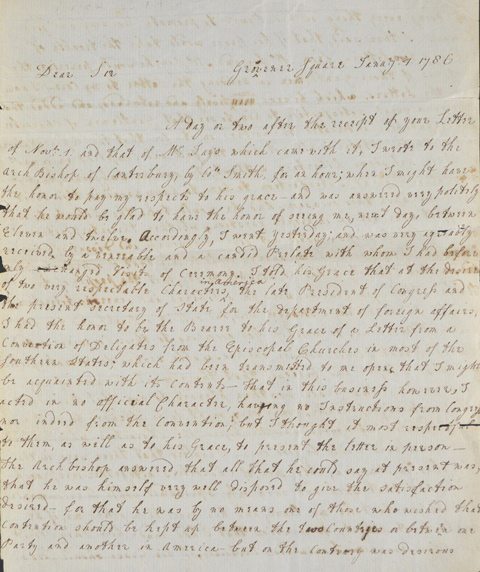 Dear Sir Grovener Square Janay 4 1786
A day or two after the receipt of your Letter
of Novr 1. and that of Mr Jays which came with it, I wrote to the
Arch Bishop of Canterbury, by Coll Smith, for an hour; when I might have
the honor to pay my respects to his grace— and was answered very politely
that he would be glad to have the honor of seeing me, next day, between
Eleven and twelve. Accordingly, I went yesterday; and was very agreably
received, by a venerable and a candid Prelate with whom I had before
only exchanged Visits of Ceremony. I told his Grace that at the desire
of two very respectable Characters, in America the late President of Congress and
the present secretary of State for the department of foreign affairs,
I had the honor to be the Bearer to his Grace of a Letter from a
Convention of Deligates from the Episcopal Churches in most of the
Southern States, which had been transmitted to me open, that I might
be acquainted with its Contents— that in this business however, I
acted in no official Character, having no Instructions from Congress
nor indeed from the Convention; but I thought it most respectful
to them, as well as to his Grace, to present the letter in person—
the Arch bishop answered, that all that he could say at present was,
that he was himself very well disposed to give the satisfaction
desired— for that he was by no means one of those who wished that
Contention should be kept up between the two Countries or between one
Party and another in America— but on the contrary was desirous